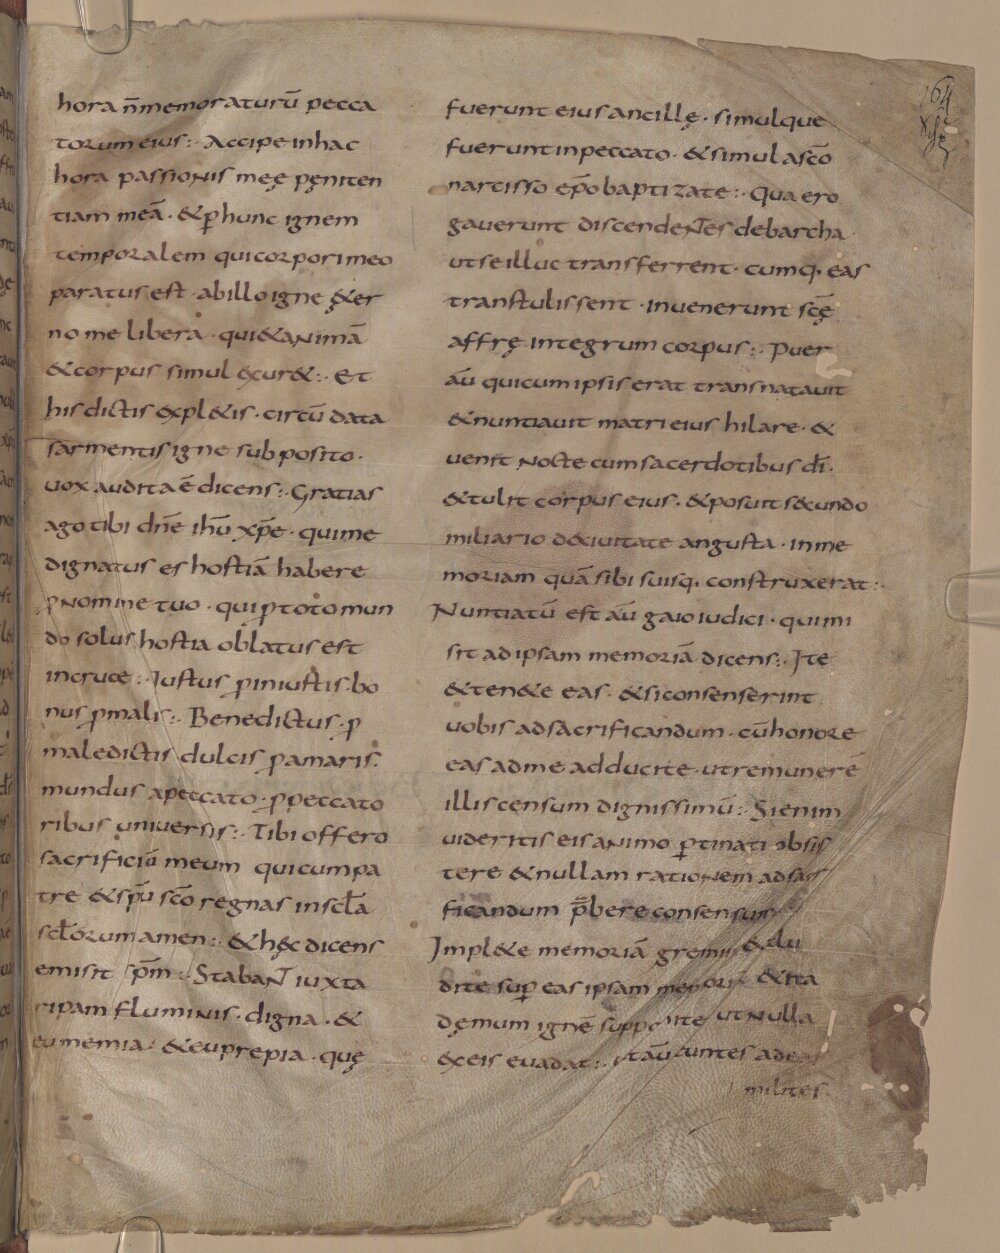 hora n̄ memoraturū pecca
torum eius:· Accipe inhac
hora passionis meę pęniten
tiam meā· & ꝑ hunc ignem
temporalem qui corpori meo
paratus est· ab illo igne ę&er
no me libera· qui & animā
& corpus simul exur&:· Et
his dictis expl&is· circū data
sarmentis igne sub posito·
uox audita ē dicens:· Gratias
ago tibi dn̄e ih̄u xp̄e· qui me
dignatus es hostiā habere
ꝓ nomine tuo· qui ꝓ toto mun
do solus hostia oblatus est
incruce:· Iustus ꝓ iniustis· bo
nus ꝓ malis:· Benedictus· ꝓ
maledictis dulcis ꝓ amaris:
mundus apeccato· ꝓ peccato
ribus uniuersis:· Tibi offero
sacrificiū meum qui cumpa
tre & sp̄u sc̄o regnas in sc̄la
sc̄lorum amen:· & hęc dicens
emisit sp̄m:· Stabant iuxta
ripam fluminis· digna· &
eumemia· & euprepia· quę
fuerunt eius ancillę· simulque
fuerunt inpeccato· & simul asc̄o
narcisso ep̄o baptizate:· Qua ero
gauerunt discendentes debarcha·
ut se illuc transferrent· cumq· eas
transtulissent· inuenerunt sc̄ę
affrę integrum corpus:· Puer
aū qui cum ipsis erat transnatauit
& nuntiauit matri eius hilare· &
uenit nocte cum sacerdotibus dī·
& tulit corpus eius· & posuit secundo
miliario deciuitate angusta· in me
moriam quā sibi suisq· construxerat:·
Nuntiatū est aū gaio iudici· qui mi
sit ad ipsam memoriā dicens:· Ite
& ten&e eas· & si consenserint
uobis ad sacrificandum· cū honore
eas ad me adducite· ut remunerē
illis censum dignissimū:· Si enim
uideritis eis animo ꝑtinati obsis
tere & nullam rationem ad sacri
ficandum p̄bere consensum
Impl&e memoriā gremiis & clu
dite suꝑ eas ipsam memoriā & ita
dęmum ignē supponite ut nulla
ex eis euadat:· aū euntes ad eas
milites